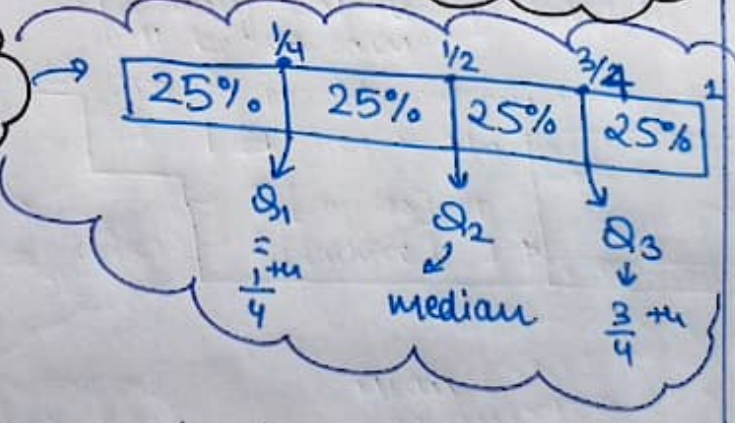 1/4 1/2 3/4 1
25% 25% 25% 25%
Q1 Q2 Q3
= 1/4 th
median
3/4 th